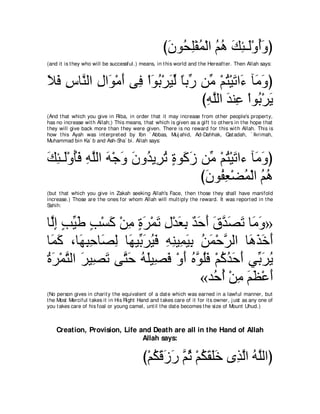 (وَأُوْلَـئِكَ هُمُ الْمُفْلِحُونَ)
(and it is they who will be successful.) means, in this world and the Hereafter. Then Allah says:
(وَمَآ ءَاتَيْتُمْ مِّن رِّباً لِّيَرْبُوَاْ فِى أَمْوَالِ النَّاسِ فَلاَ
يَرْبُواْ عِندَ اللَّهِ)
(And that which you give in Riba, in order that it may increase from other people's property,
has no increase with Allah;) This means, that which is given as a gift to others in the hope that
they will give back more than they were given. There is no reward for this with Allah. This is
how this Ayah was interpreted by Ibn `Abbas, Mujahid, Ad-Dahhak, Qatadah, `Ikrimah,
Muhammad bin Ka`b and Ash-Sha`bi. Allah says:
(وَمَآ ءَاتَيْتُمْ مِّن زَكَوةٍ تُرِيدُونَ وَجْهَ اللَّهِ فَأُوْلَـئِكَ
هُمُ الْمُضْعِفُونَ)
(but that which you give in Zakah seeking Allah's Face, then those they shall have manifold
increase.) Those are the ones for whom Allah will multiply the reward. It was reported in the
Sahih:
«وَمَا تَصَدَّقَ أَحَدٌ بِعَدْلِ تَمْرَةٍ مِنْ كَسْبٍ طَيِّبٍ إِلَّا
أَخَذَهَا الرَّحْمنُ بِيَمِينِهِ فَيُرَبِّيهَا لِصَاحِبِهَا، كَمَا
يُرَبِّي أَحَدُكُمْ فَلُوَّهُ أَوْ فَصِيلَهُ حَتَّى تَصِيرَ التَّمْرَةُ
أَعْظَمَ مِنْ أُحُد»
(No person gives in charity the equivalent of a date which was earned in a lawful manner, but
the Most Merciful takes it in His Right Hand and takes care of it for its owner, just as any one of
you takes care of his foal or young camel, until the date becomes the size of Mount Uhud.)
Creation, Provision, Life and Death are all in the Hand of Allah
Allah says:
(اللَّهُ الَّذِى خَلَقَكُمْ ثُمَّ رَزَقَكُمْ)